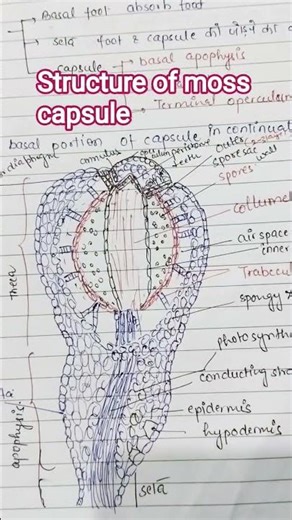 Basal foot absorb food
seta foot & capsule को जोड़ने का
capsule basal apophysis
Structure of moss
capsule
Terminal operculum
basal portion of capsule in continuat
diaphragm annulus peristome
teeth
outer
sporesac wall
spores
columel
air space
inner
Trabecu
theca
spongy
photosynthe
conducting stra
apophysis
epidermis
hypodermis
seta